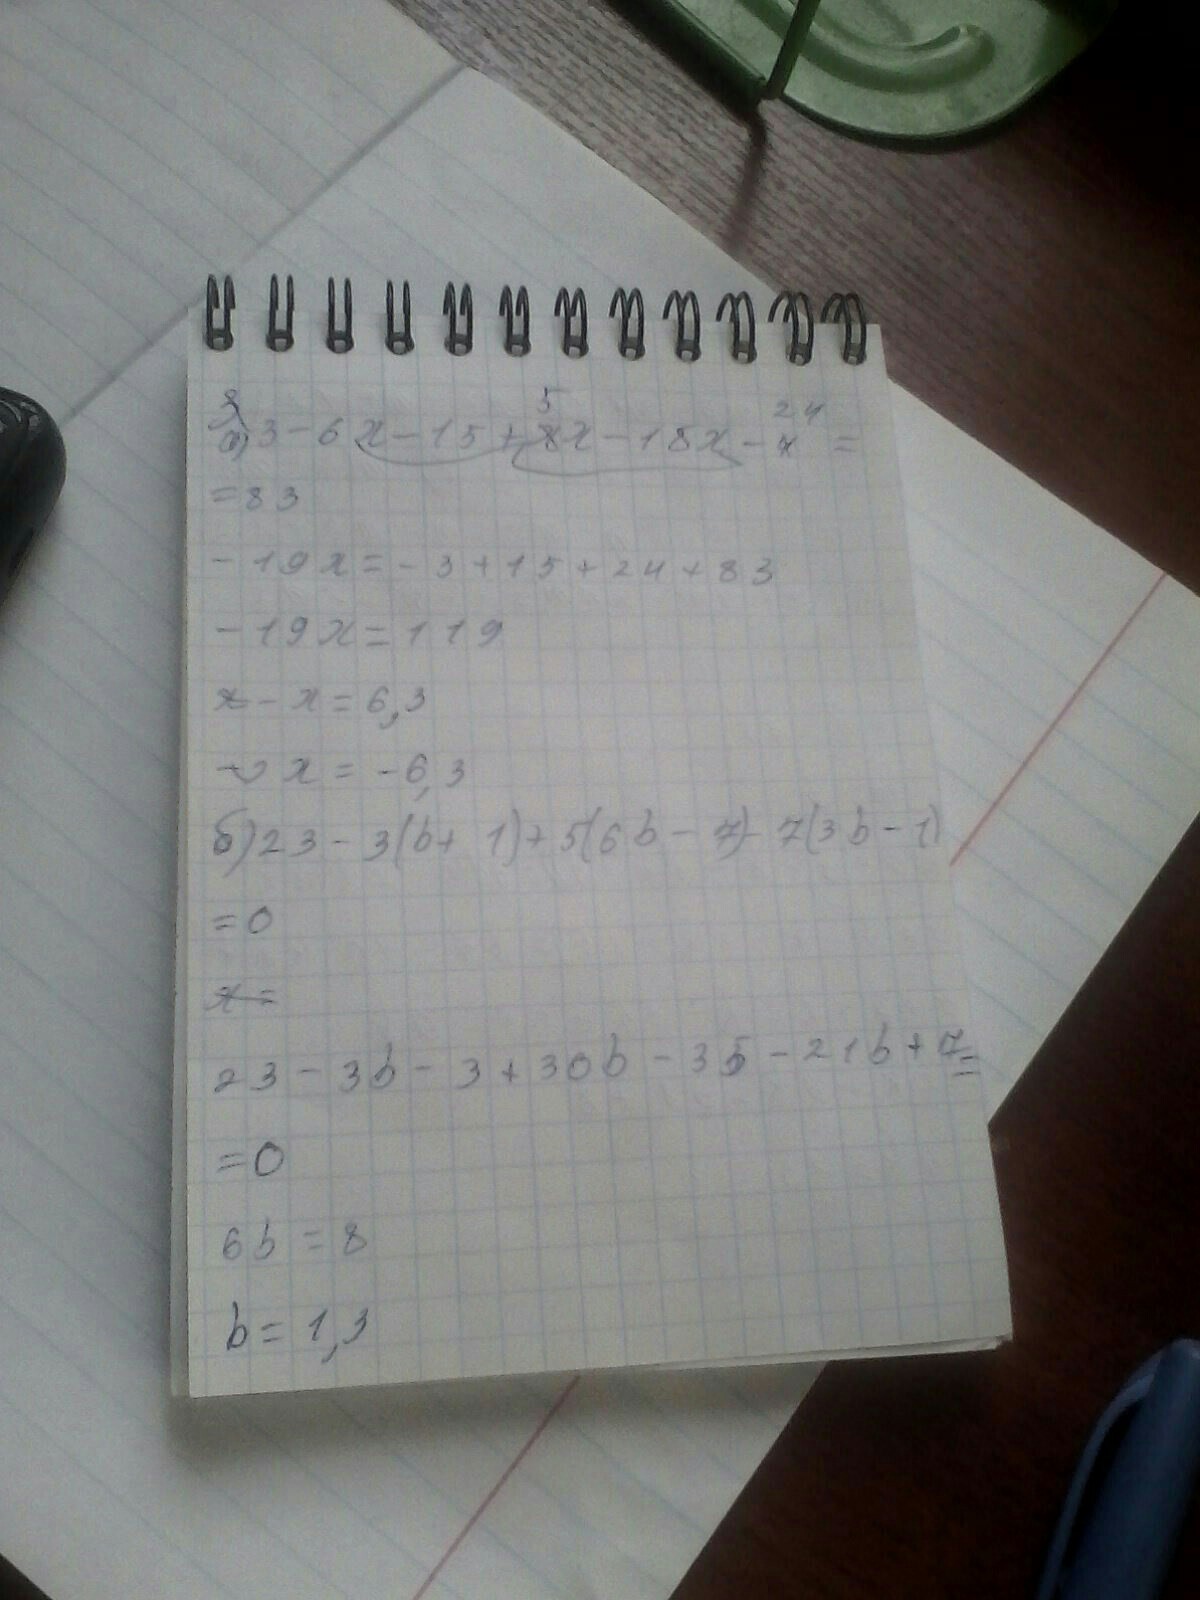 а) 3 - 6x - 15 + 5x - 18x - 24 =
= 83
- 19x = - 3 + 15 + 24 + 83
- 19x = 119
- x = 6,3
x = - 6,3
б) 23 - 3(b + 1) + 5(6b - 7) - 7(3b - 1)
= 0
x =
23 - 3b - 3 + 30b - 35 - 21b + 7 =
= 0
6b = 8
b = 1,3